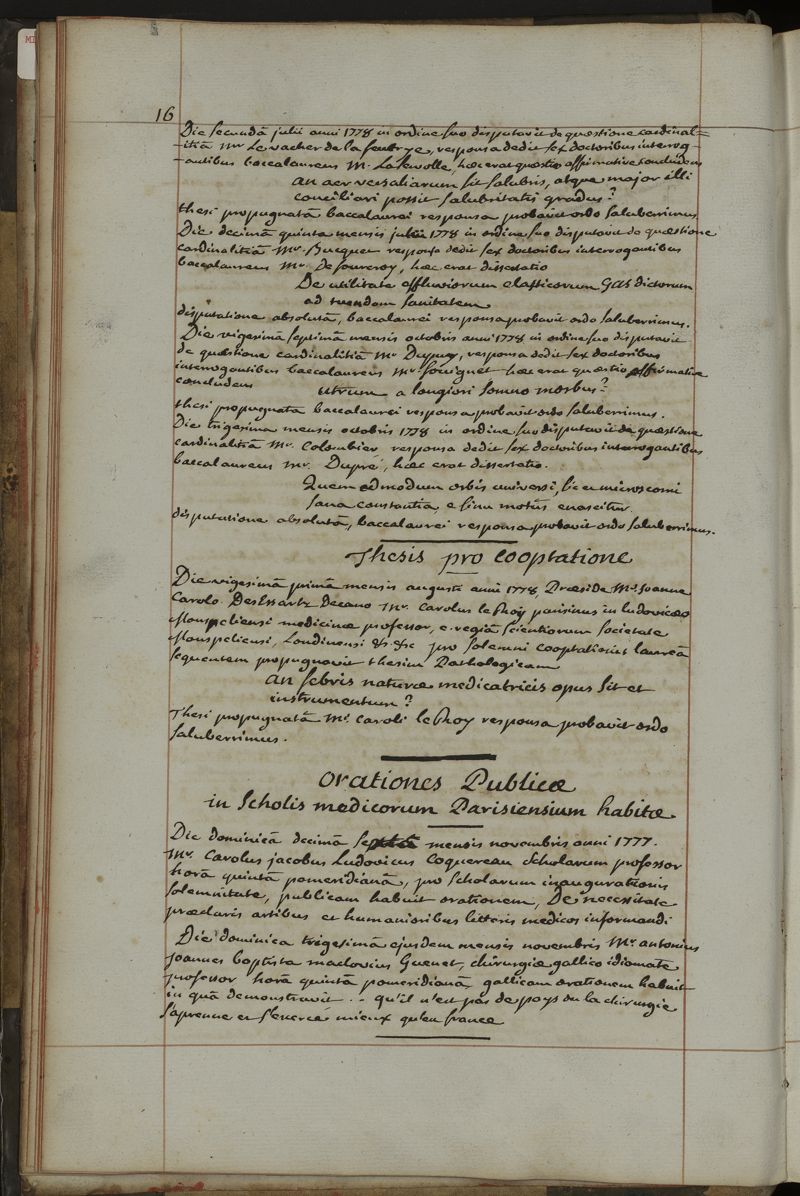 16
Die secundâ julii anni 1778 in ordine suo disputavit de quæstione cardinal=
-itiâ Mr Levacher de la feutrye, responsa dedit sex doctoribus interrog-
-antibus baccalaureus M. Lasevolle, hæc erat quæstio affirmative concludens
an aer versaliarum sit salubris, atque major illi
conciliari possit salubritatis gradus?
thesi propugnatâ baccalaurei responsa probavit ordo saluberrimus.
Die decimâ quinta mensis julii 1778 in ordine suo disputavit de quæstione
cardinalitiâ Mr. Bucquet responsa dedit sex doctoribus interrogantibus
baccalaureus Mr. De fourcroy, hæc erat dissertatio
De utilitate effluviorum elasticorum gas dictorum
ad tuendam sanitatem
disputatione absolutâ, baccalaurei responsa probavit ordo saluberrimus.
Die vigesimâ septimâ mensis octobris anni 1778 in ordine suo disputavit
de quæstione cardinalitiâ Mr Dupuy, responsa dedit sex doctoribus
interrogantibus baccalaureus Mr Jouignet hæc erat quæstio affirmative
concludens utrum a longiori somno morbus?
thesi propugnata baccalaurei responsa probavit ordo saluberrimus.
Die trigesima mensis octobris 1778 in ordine suo disputavit de quæstione
cardinalitiâ Mr. Colombier, responsa dedit sex doctoribus interrogantibus
baccalaureus Mr. Dupré, hæc erat dissertatio.
Quem admodum orbis universi, sic et microscomi
sana constantia e sinu motûs enascitur.
disputatione absolutâ, baccalaurei responsa probavit ordo saluberrimus.
Thesis pro cooptatione
Die vigesimâ primâ mensis augusti anni 1778, Præside Mo Joanne
Carolo DesEssartz Decano Mr. Carolus le Roy parisinus in ludovicæo
Monspeliensi medicinæ professor, e regiâ scientiarum societate
Monspeliensi, Londinensi &c &c pro solemni cooptationis laureâ
sequentem propugnavit thesim Pathologicam
an febris naturæ medicatricis opus sit et
instrumentum?
Thesi propugnatâ Mi Caroli le Roy responsa probavit ordo
saluberrimus.
Orationes Publicæ
in Scholis medicorum Parisiensium habitæ
Die dominicâ decimâ mensis novembris anni 1777.
Mr. Carolus jacobus Ludovicus Coquereau scholarum professor
horâ quintâ pomeridianâ, pro scholarum inaugurationis
solemnitate, publicam habuit orationem, De necessitate
præclaris artibus et humanioribus litteris medicos informandi
Die dominica trigesimâ ejusdem mensis novembris Mr antonius
joannes baptista maclovius Guenet, chirurgiæ gallico idiomate
professor horâ quintâ pomeridianâ, gallicam orationem habuit
in quâ demonstravit .. qu'il n'est pas de pays ou la chirurgie
s'aprenne et s'exerce mieux qu'en france